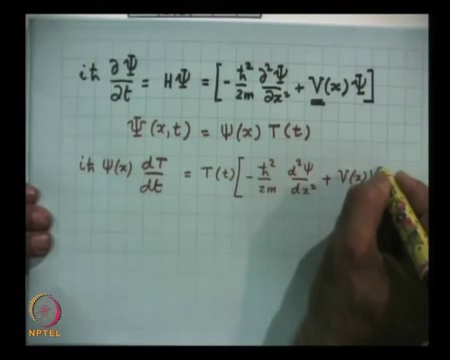 iħ ∂Ψ/∂t = HΨ = [-ħ²/2m ∂²Ψ/∂x² + V(x)Ψ]
Ψ(x,t) = ψ(x) T(t)
iħ ψ(x) dT/dt = T(t)[-ħ²/2m d²ψ/dx² + V(x)
NPTEL